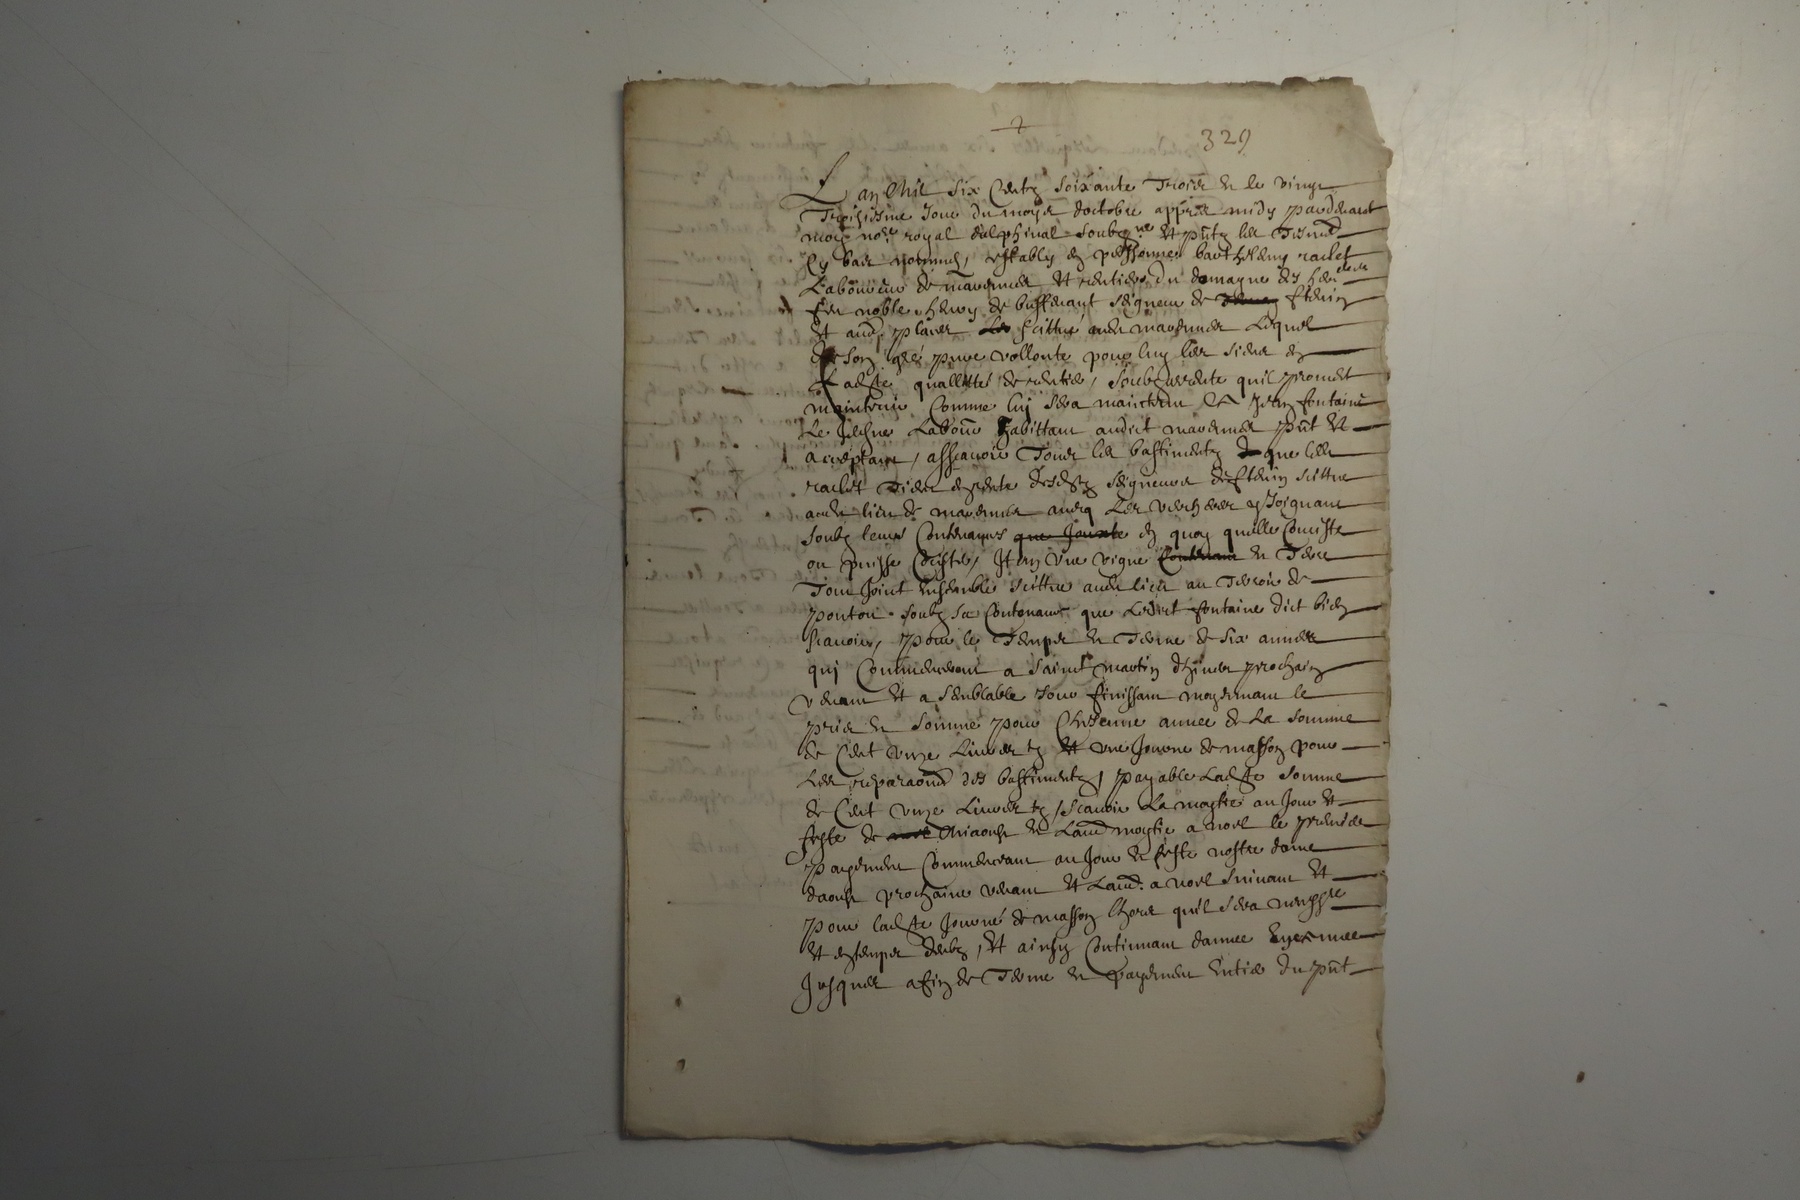 329
L'an Mil six Centz soixante Trois et le vingt
Troisiesme Jour du moys doctobre appres midy pardevant
moy no.re royal dalphinal soubz.ne et pntz les Tesm. 
Cy bas nommes, estably en personne barthelemy raclet
Laboureur de marennes et rentier du domayne des heu
feu noble de buffevant seigneur de
et aud. places scittué aud marennes Lequel
de son gré pure vollonte pour luy les siens en
ladte quallitté de rentier, soubzarrente quil promet
maintenir Comme luy sera maintenu, a Jean fontaine
Le Jeusne Labour habittant audict marennes pnt et
acceptant, assavoir Tous les bastimentz que led
raclet Tient en rente desdtz seigneurs scittue
aud lieu de marennes avecq Les vercheres y Joignant
soubz leurs Contenances que Jouxte en quoy quelle Conciste
ou puisse Consister, Item une vigne Contenant et Terre
Tout Joint ensemble scittue aud lieu au Terroir de
soubz sa Contenance que Ledict fontaine dict bien
scavoir, pour le Temps et Terme de six annees
quj Commenceront a Saint martin dhiver prochain
venant et a semblable Jour finissant moyennant le
pris et somme pour Chacune annee de La somme
de Cent unze Livres tz et une Journe de masson pour
Les reparaons des bastimentz, payable Ladte somme
de Cent unze Livres tz, scavoir La moytie au Jour et
feste de Miaoust et Laud moytie a noel le premier
payement Commenceant au Jour et feste nostre dame
daoust prochaine venant et Laud. a noel suivant et
pour ladte Journé de masson Lhors quil sera necessre
et en temps deub, et ainsy Continuant dannee en annee
Jusques a fin de Terme et payement entier du pnt